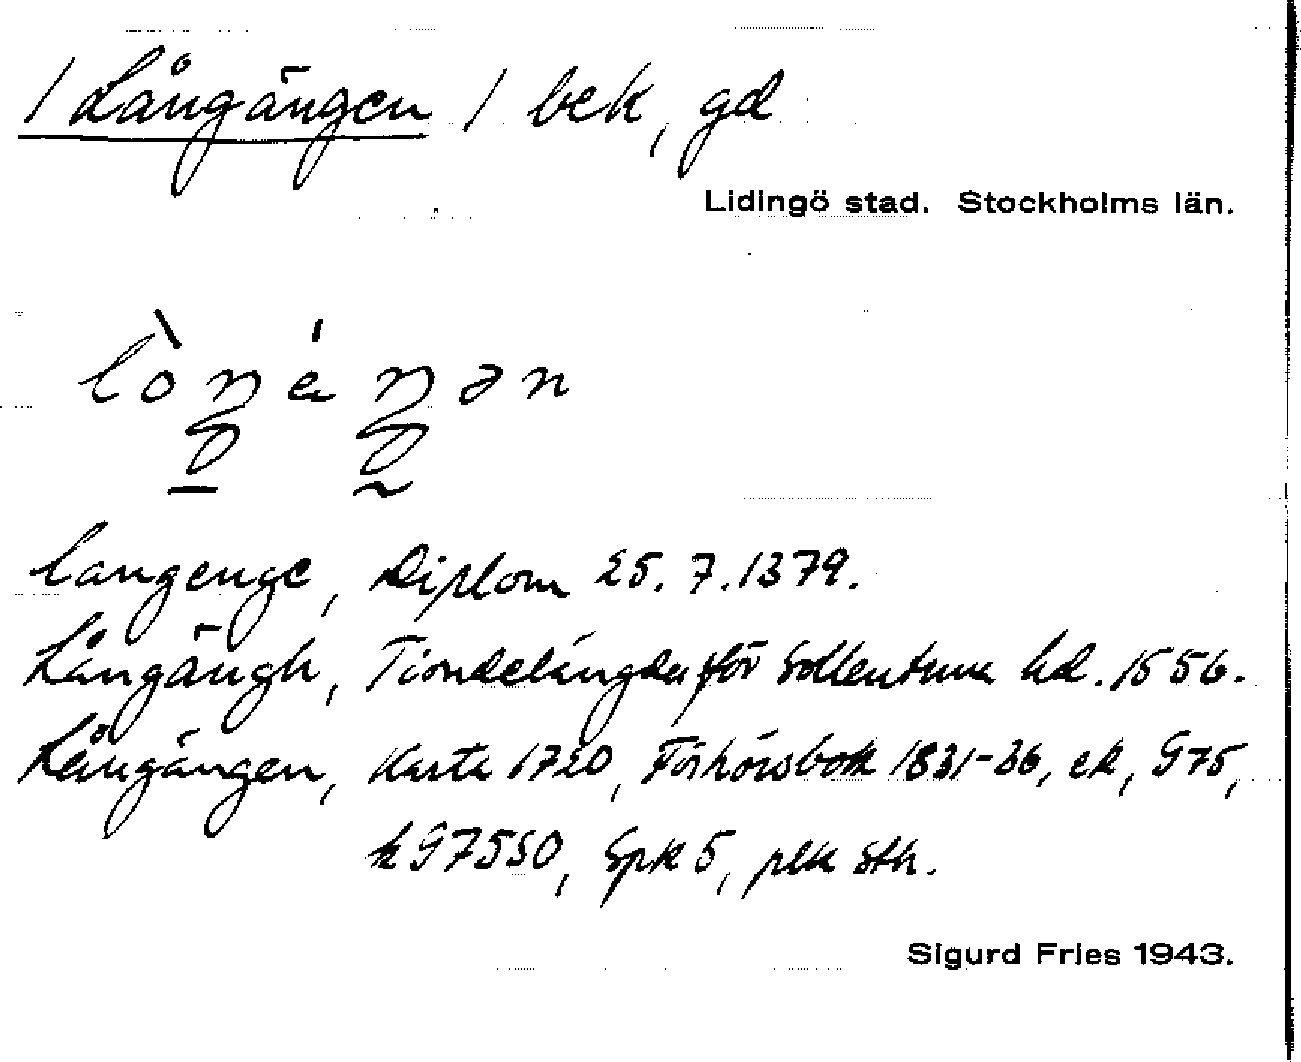 / Långängen / bek, gd
Lidingö stad. Stockholms län.
langenge, Diplom 25.7.1379.
Långängh, Tiondelängder för Sollentuna hd. 1556.
Långängen, Karta 1720, Förhörsbok 1831-36, ek, G75,
h G7550, Spk 5, plk Sth.
Sigurd Fries 1943.